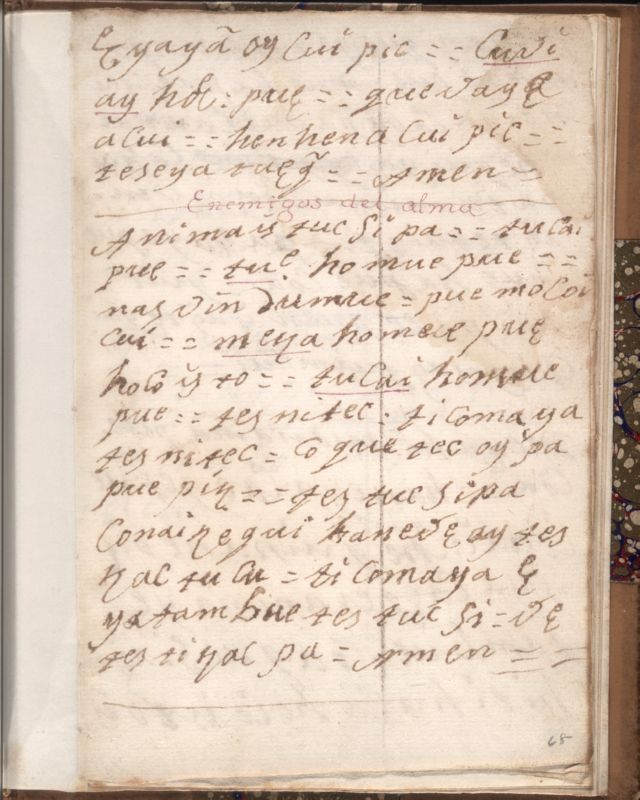 Ɛ yayã oy Cui pic = = Cuѵi
ay hoł : puę = = que ѵay Ɛ
a Cui = = hen hen a Cui pic = =
teseya tueq̃ = = Amen =
Enemigos del alma
Animais tuc si pa = = tu Cai
pue = = tue. homue pue = =
nas ѵin dumuc = pue mo Coi
Cui = = meya homue puę
ho Co ys to = = tu Cai homue
pue = = tes nitec = ti comaya
tes nitec = Co que tec oy pa
pue piɀ = = tes tuc sipa
Conaiɀegui hane ѵę ay tes
ɀac tu Cu = ti comaya Ɛ
ya tambue tes tuc si = ѵę
tes ti ɀac pa = Amen = =
68